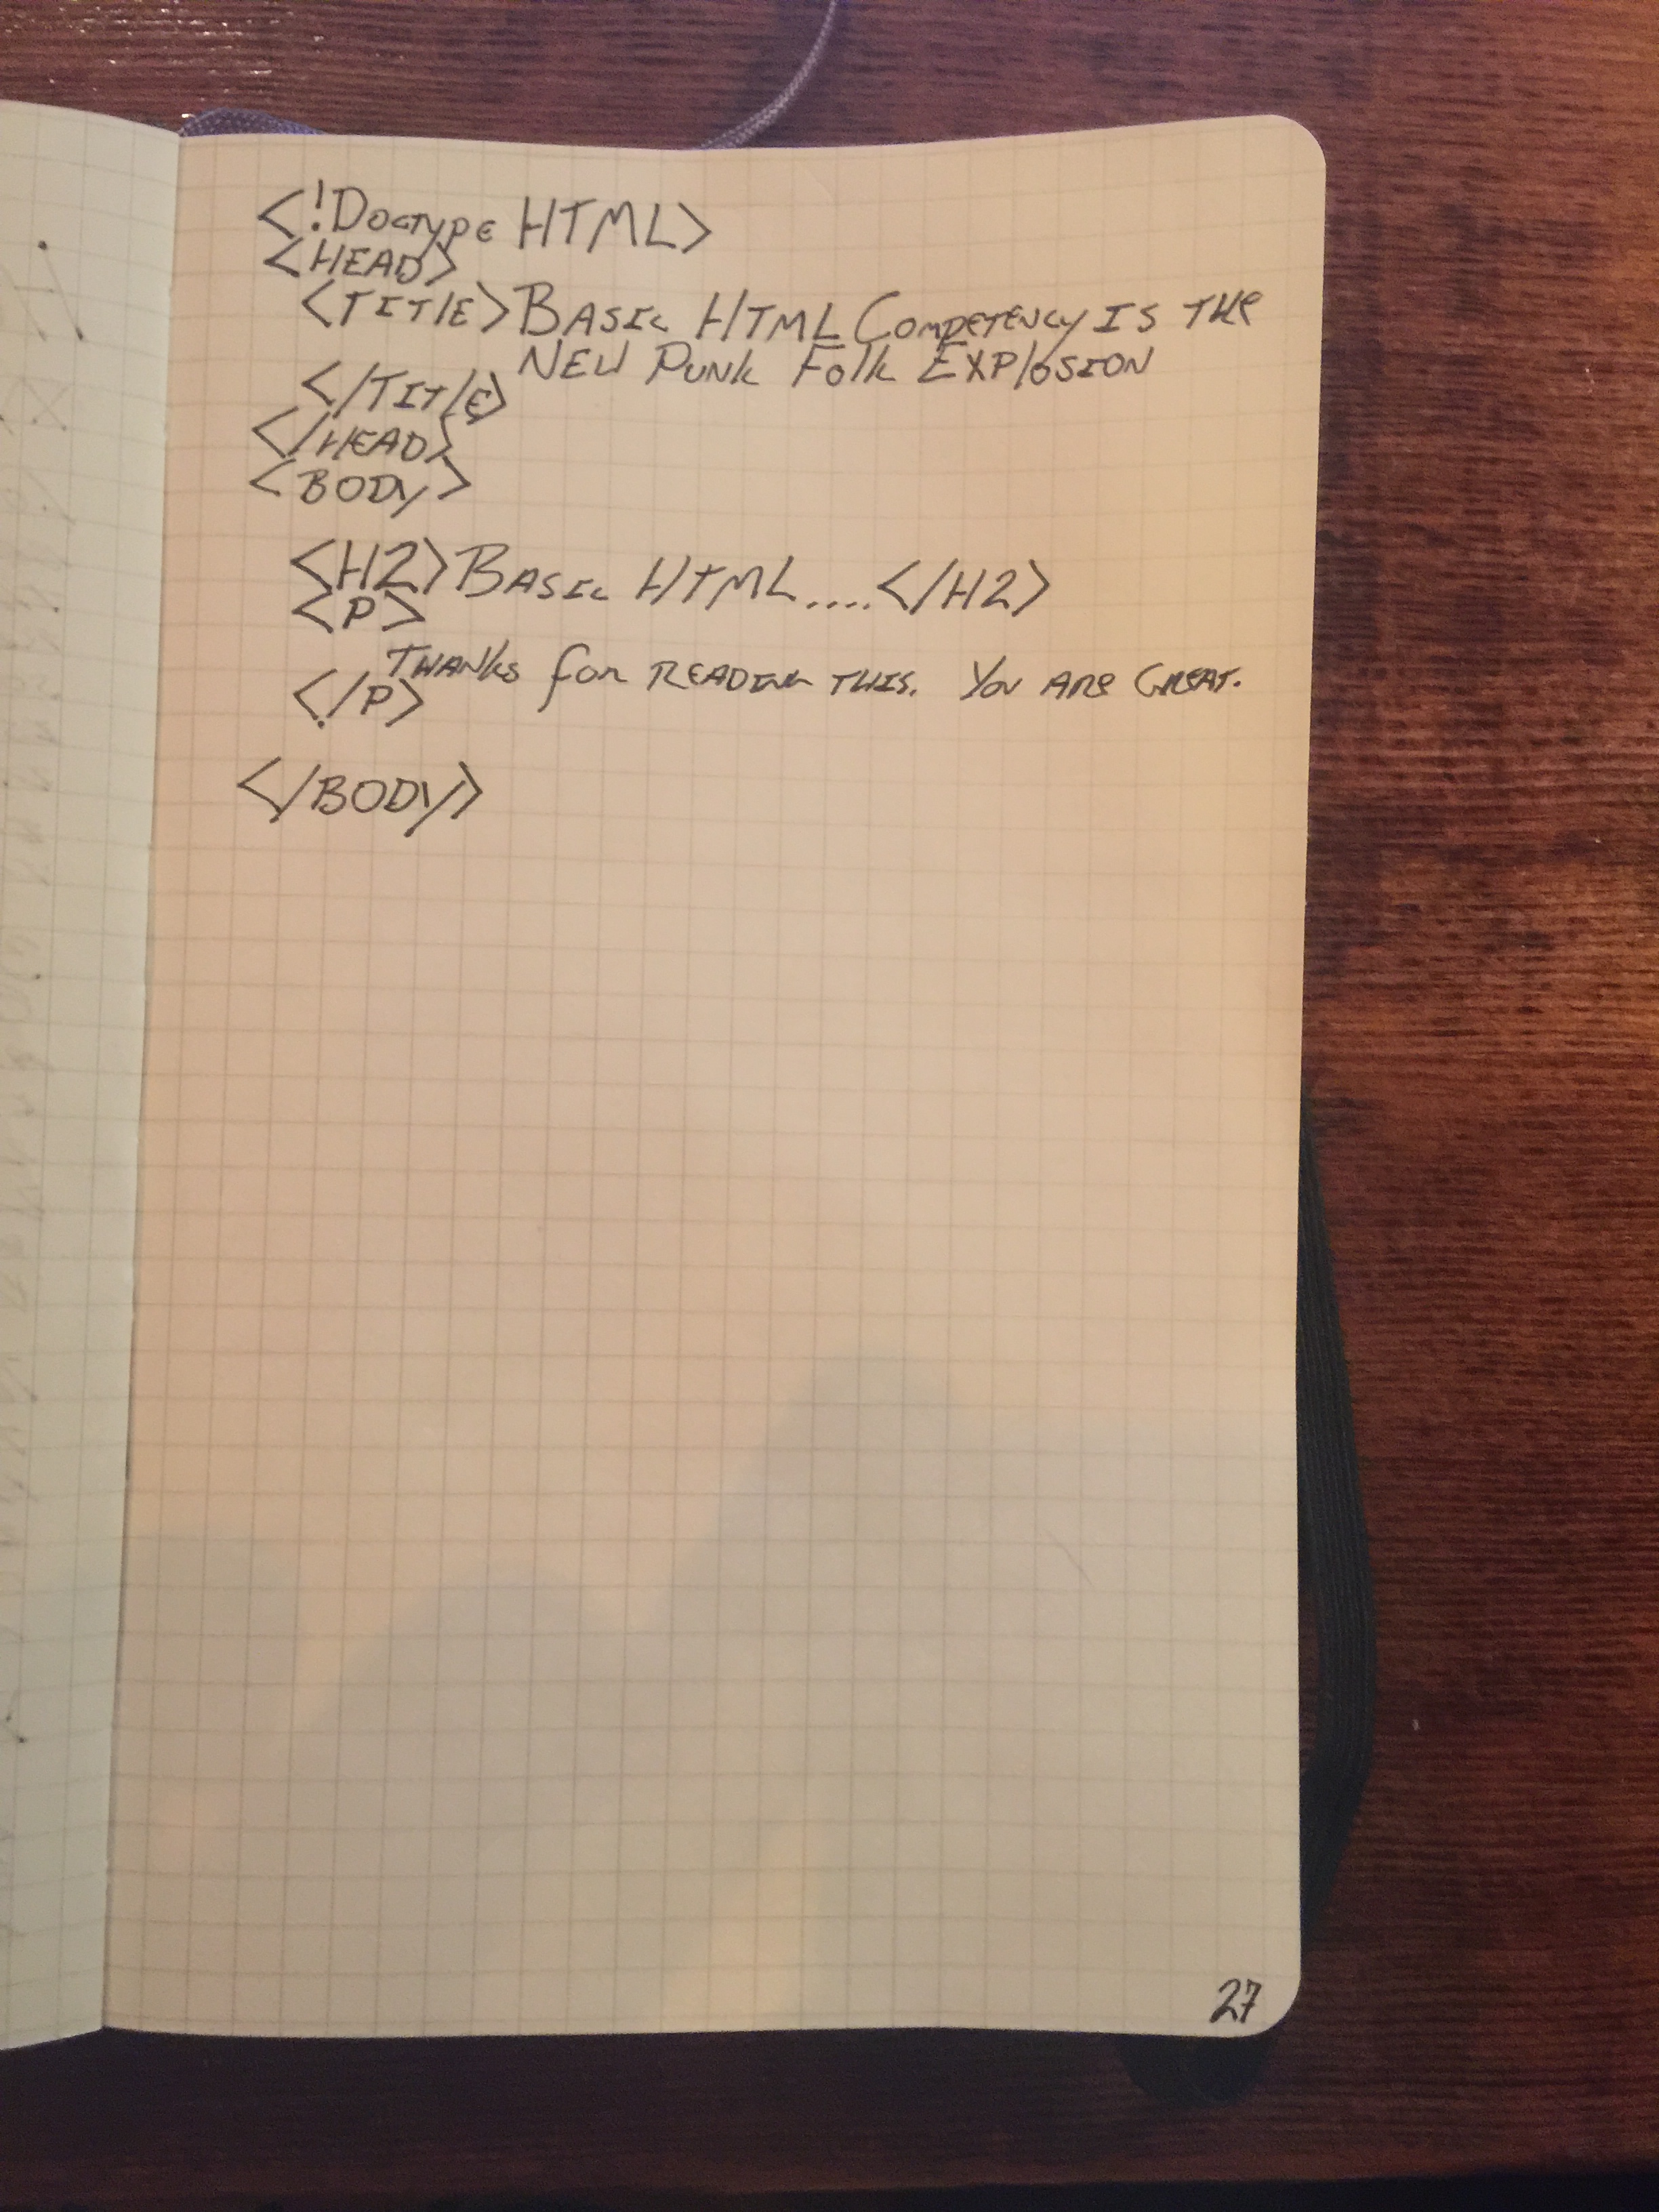 <!Doctype HTML>
<HEAD>
<TITlE>BASIC HTML COMPETENCY IS THe
NEW PUNK FOlk EXPlOSION
</TITlE>
</HEAD>
<BODY>
<H2>BASIC HTML....</H2>
<P>
THANKS for READING THIS. YOU ARe GREAT.
</P>
</BODY>
27